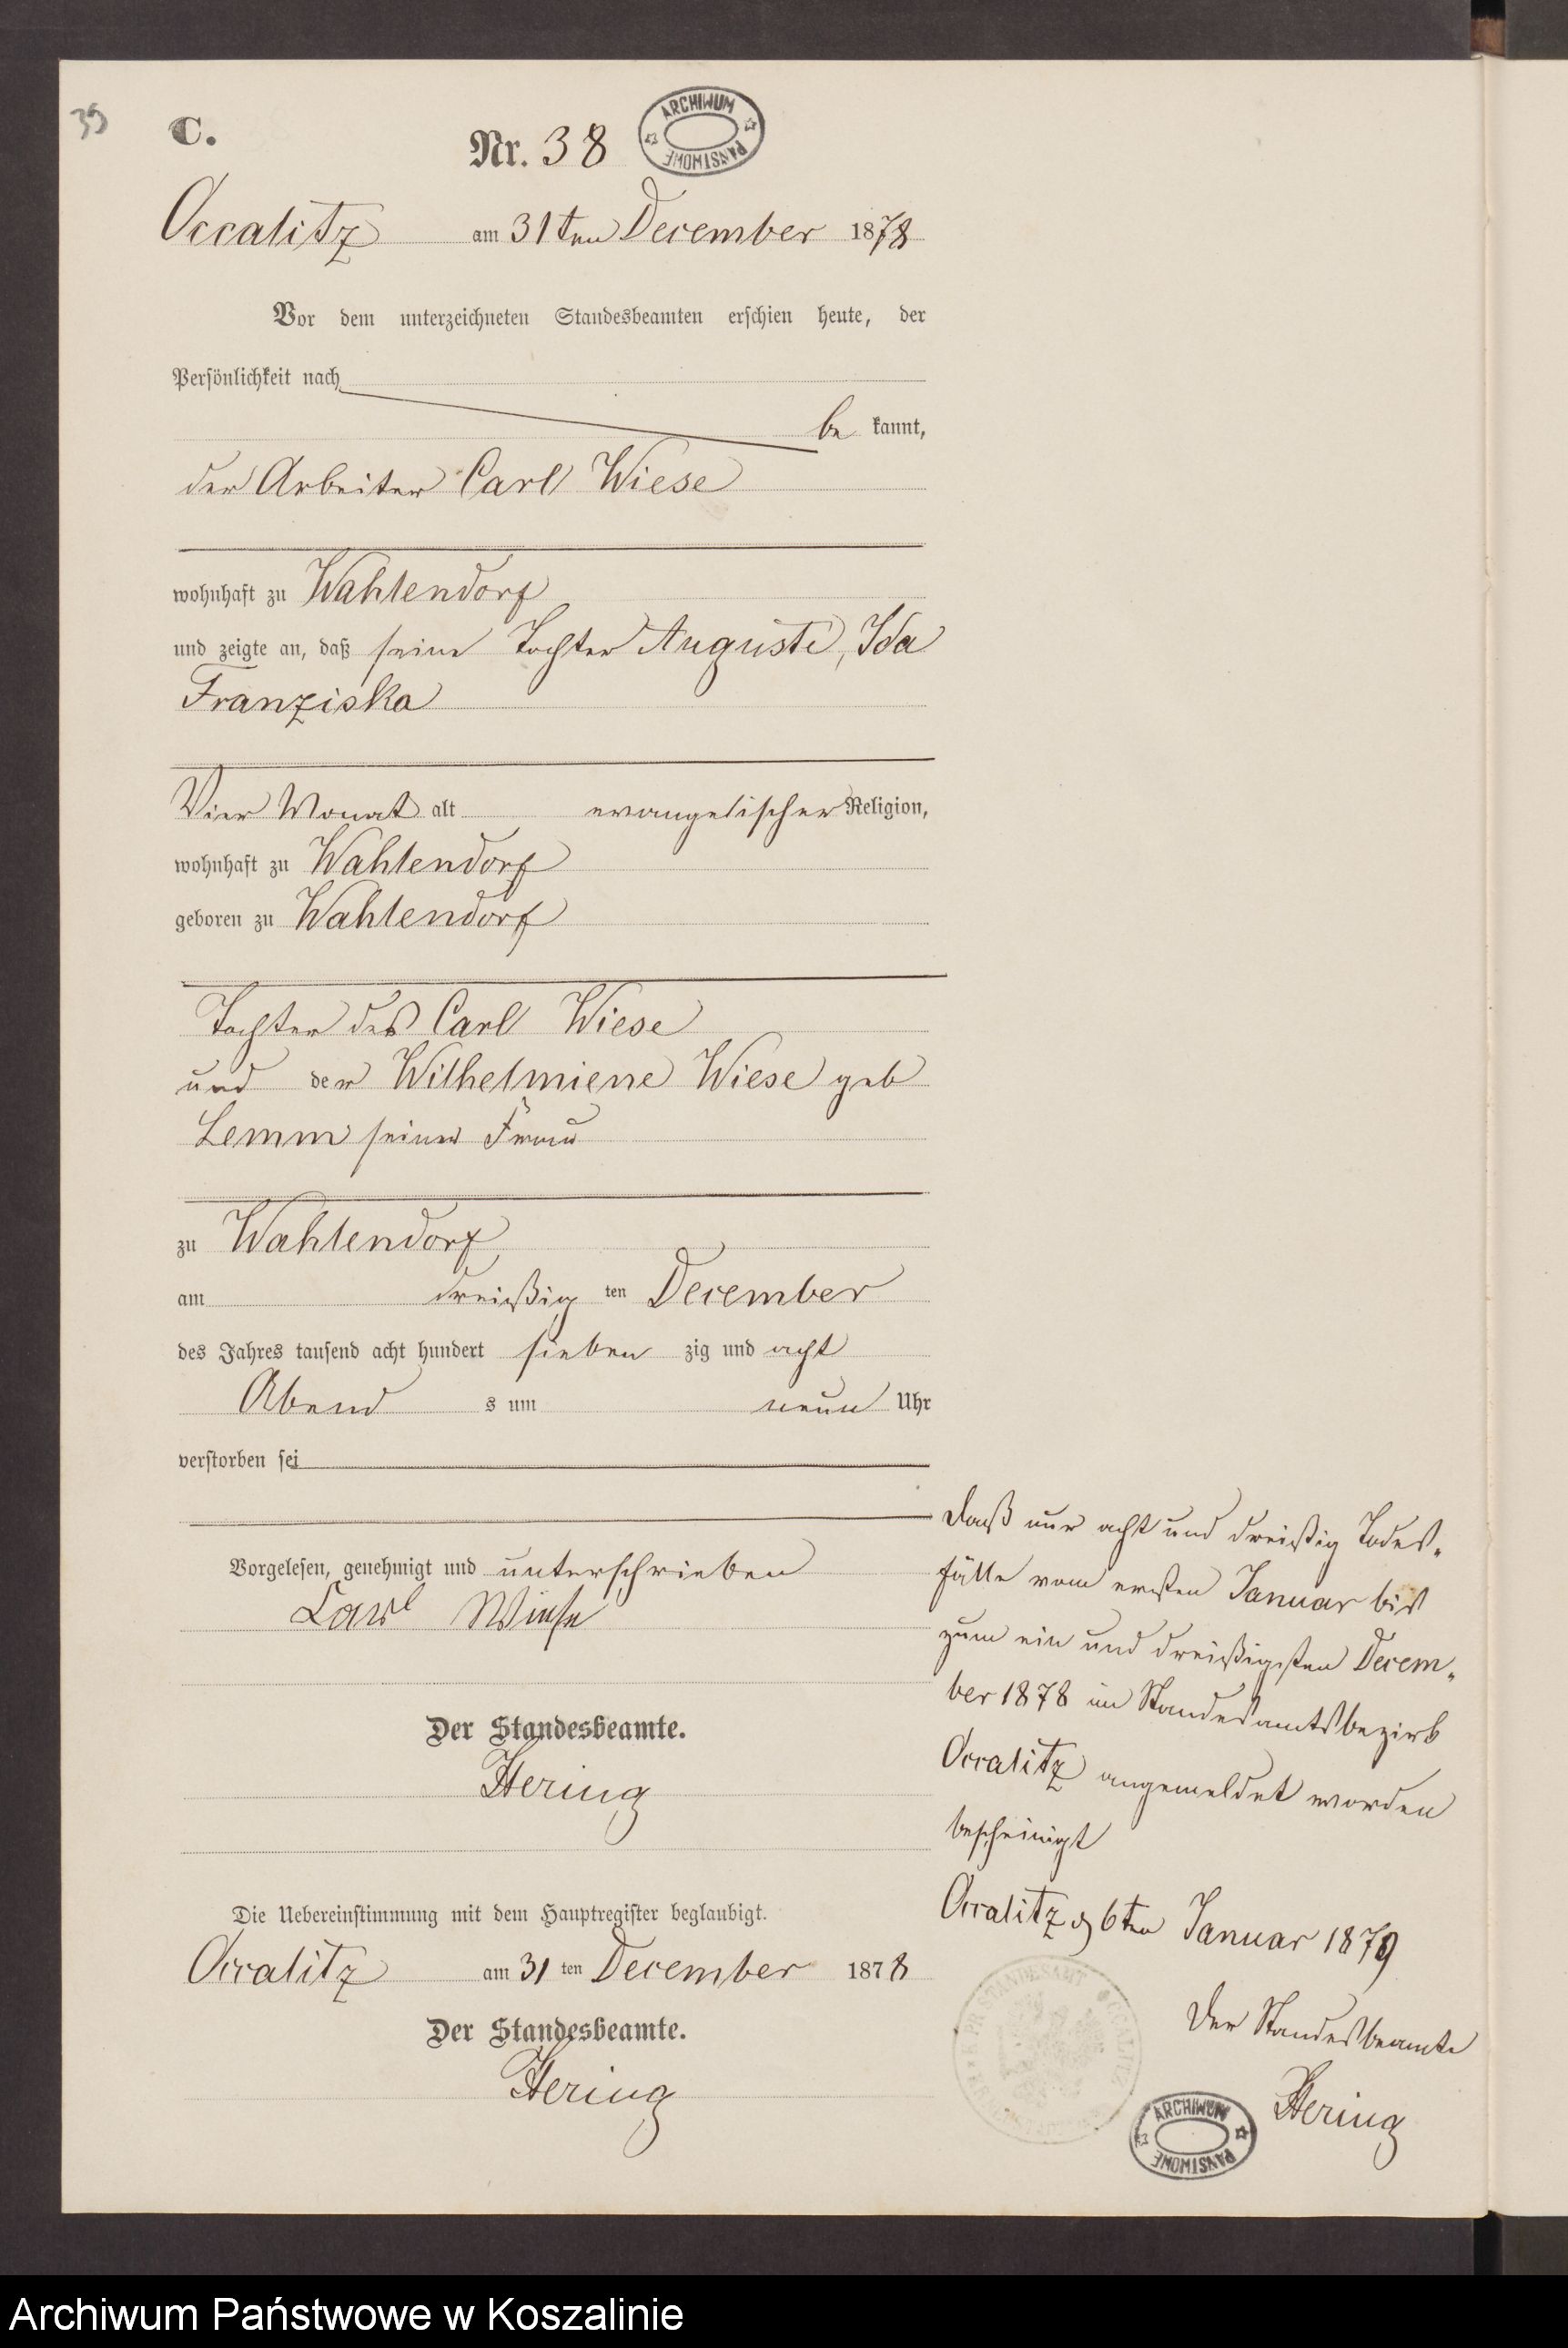 39
C.
Nr. 38
ARCHIWUM
PAŃSTWOWE
Occalitz am 31ten December 1878
Vor dem unterzeichneten Standesbeamten erschien heute, der
Persönlichkeit nach
be kannt,
der Arbeiter Carl Wiese
wohnhaft zu Wahlendorf
und zeigte an, daß seine Tochter Auguste, Ida
Franziska
Vier Monat alt evangelischer Religion,
wohnhaft zu Wahlendorf
geboren zu Wahlendorf
Tochter des Carl Wiese
und der Wilhelmiene Wiese geb
Lemm seiner Frau
zu Wahlendorf
am dreißig ten December
des Jahres tausend acht hundert sieben zig und acht
Abend s um neun Uhr
verstorben sei
Vorgelesen, genehmigt und unterschrieben
Carl Wiese
Der Standesbeamte.
Hering
Die Uebereinstimmung mit dem Hauptregister beglaubigt.
Occalitz am 31 ten December 1878
Der Standesbeamte.
Hering
Daß nur acht und dreißig Todes-
fälle vom ersten Januar bis
zum ein und dreißigsten Decem-
ber 1878 im Standesamtsbezirk
Occalitz angemeldet worden
bescheinigt
Occalitz d 6ten Januar 1879
Der Standesbeamte
Hering
STANDESAMT OCCALITZ
ARCHIWUM
PAŃSTWOWE
Archiwum Państwowe w Koszalinie